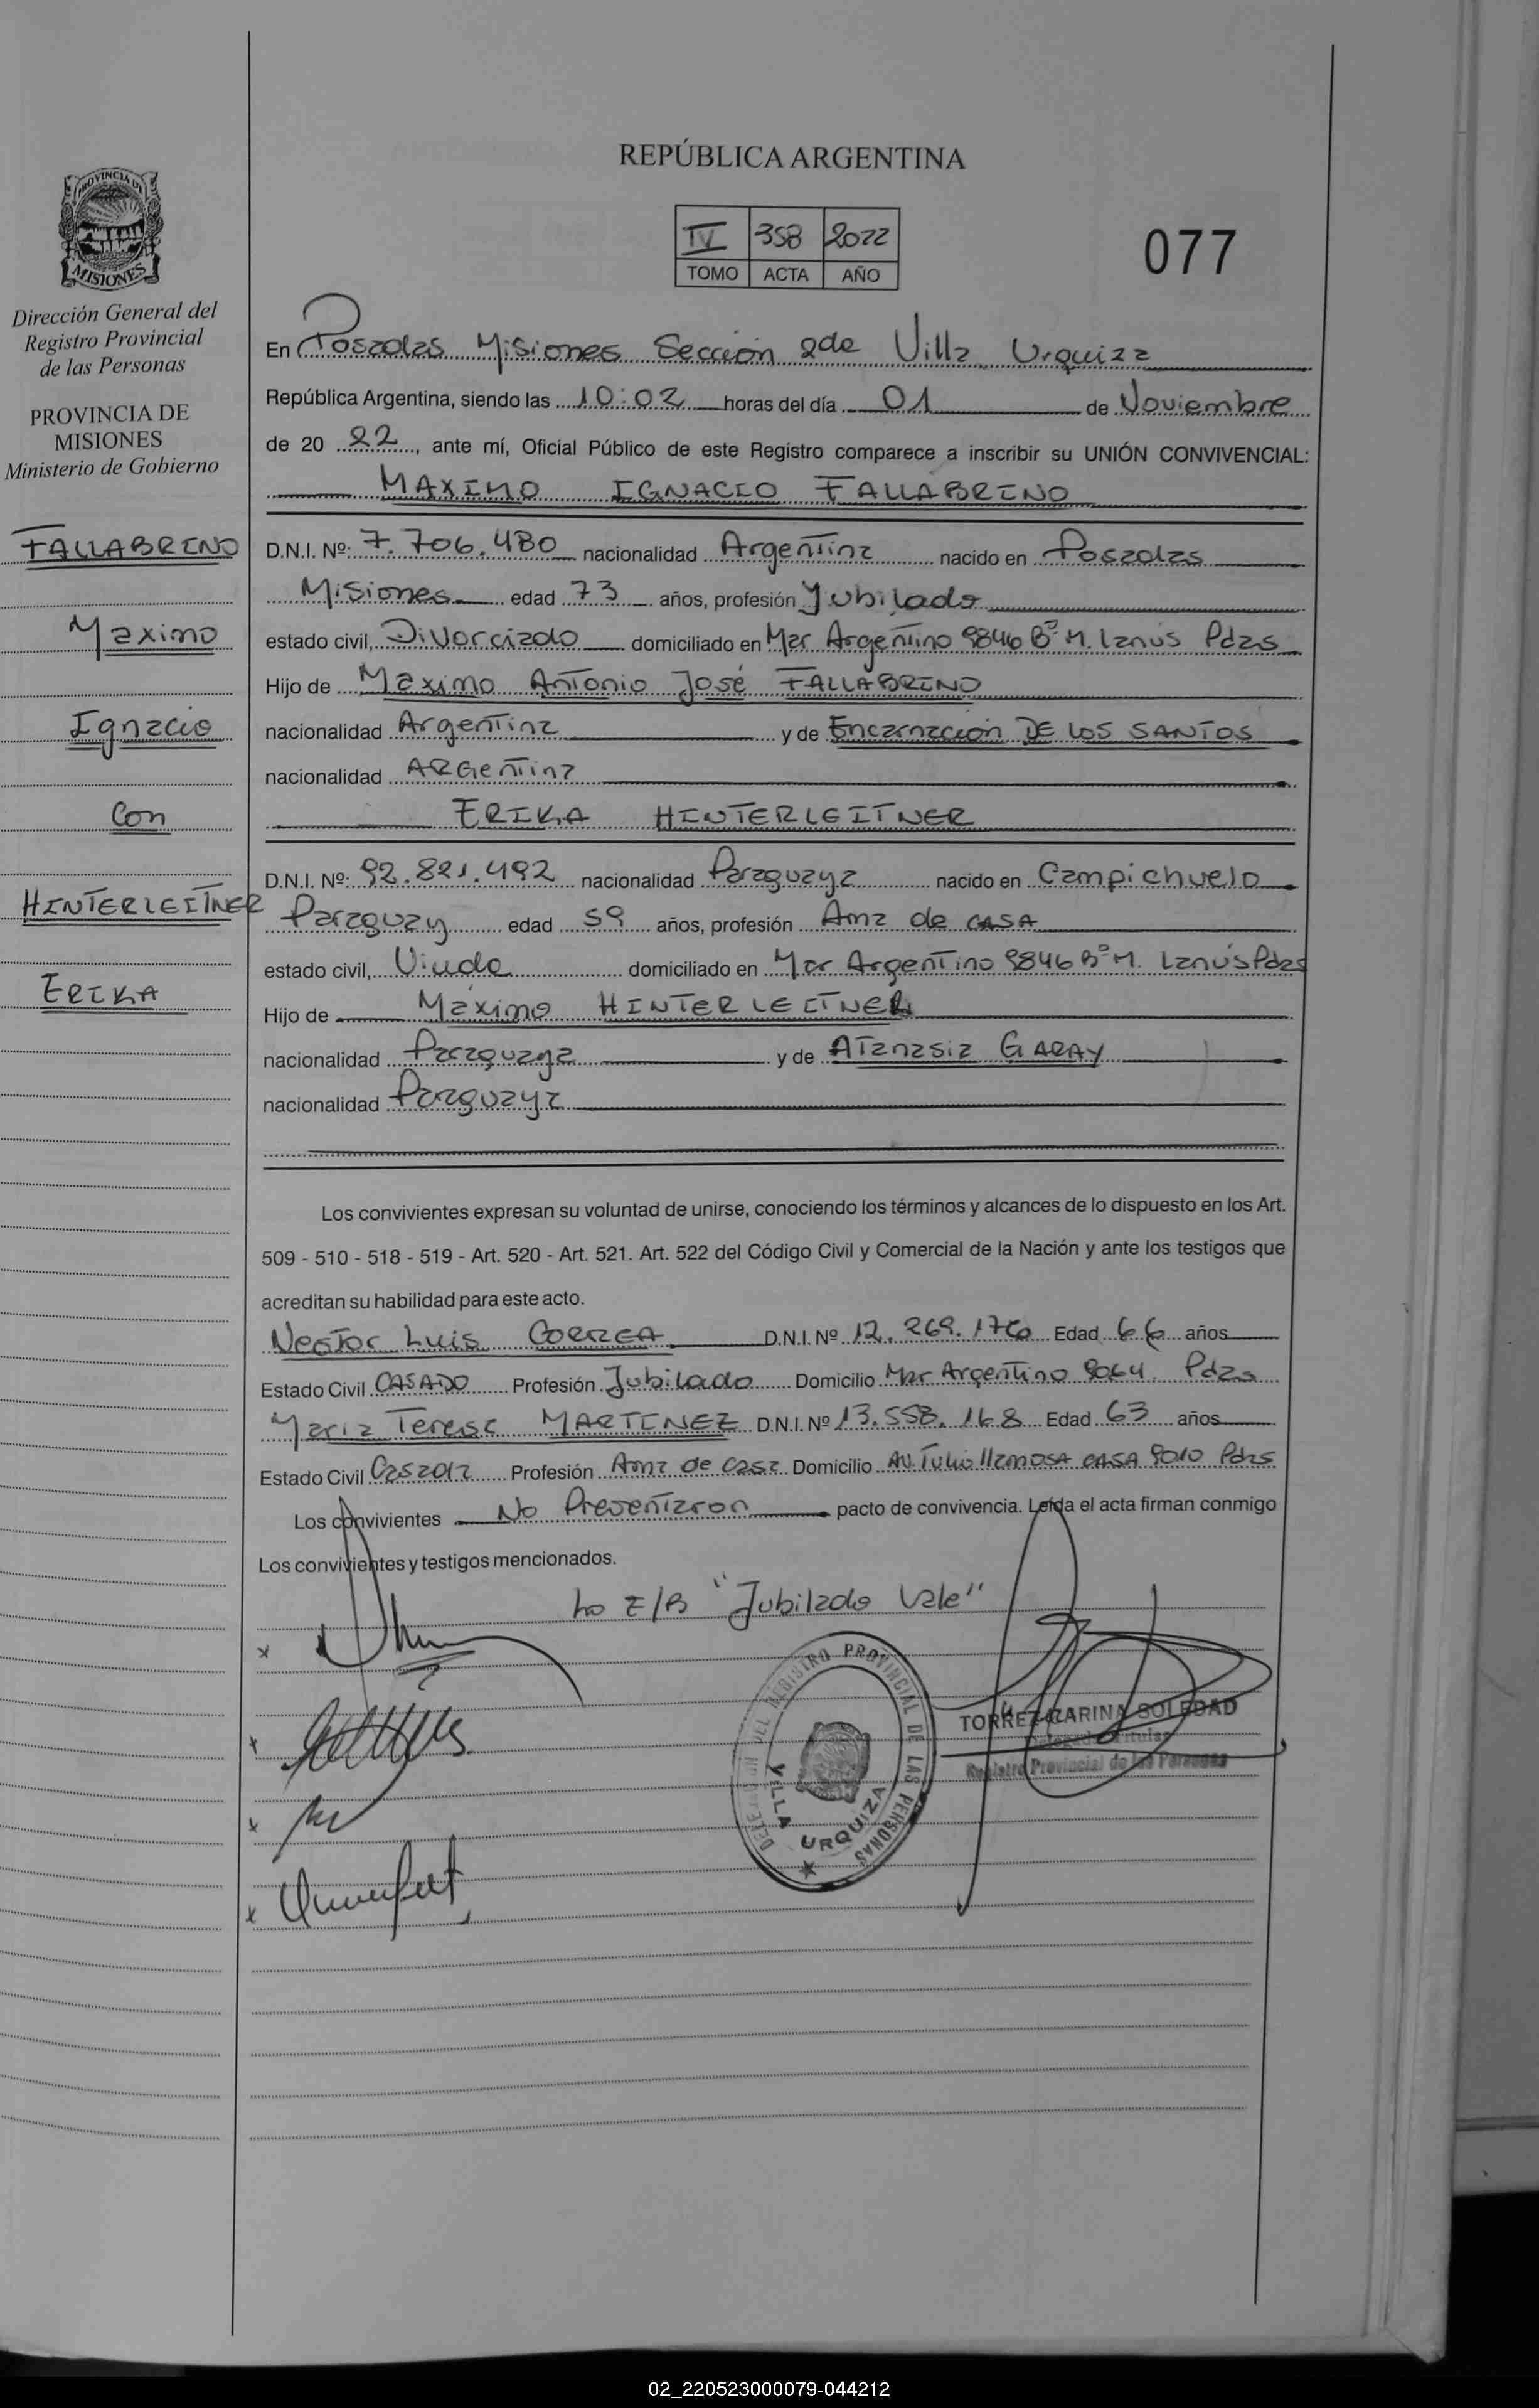 REPÚBLICA ARGENTINA
IV 358 2022
TOMO ACTA AÑO
077
PROVINCIA DE
MISIONES
Dirección General del
Registro Provincial
de las Personas
PROVINCIA DE
MISIONES
Ministerio de Gobierno
FALLABRINO
Maximo
Ignacio
Con
HINTERLEITNER
ERIKA
En Posadas Misiones Sección 2da Villa Urquiza
República Argentina, siendo las 10:02 horas del día 01 de Noviembre
de 20 22, ante mí, Oficial Público de este Registro comparece a inscribir su UNIÓN CONVIVENCIAL:
MAXIMO IGNACIO FALLABRINO
D.N.I. Nº: 7.706.480 nacionalidad Argentina nacido en Posadas
Misiones edad 73 años, profesión Jubilado
estado civil, Divorciado domiciliado en Mar Argentino 9846 Bº M. Lanus Pdas
Hijo de Maximo Antonio José FALLABRINO
nacionalidad Argentina y de Encarnación DE LOS SANTOS
nacionalidad ARGentina
ERIKA HINTERLEITNER
D.N.I. Nº: 92.821.492 nacionalidad Paraguaya nacido en Campichuelo
Paraguay edad 59 años, profesión Ama de CASA
estado civil, Viuda domiciliado en Mar Argentino 9846 Bº M. Lanús Pdas
Hijo de Máximo HINTERLEITNER
nacionalidad Paraguaya y de Atanasia GARAY
nacionalidad Paraguaya
Los convivientes expresan su voluntad de unirse, conociendo los términos y alcances de lo dispuesto en los Art.
509 - 510 - 518 - 519 - Art. 520 - Art. 521. Art. 522 del Código Civil y Comercial de la Nación y ante los testigos que
acreditan su habilidad para este acto.
Nestor Luis CORREA D.N.I. Nº 12.269.176 Edad 66 años
Estado Civil CASADO Profesión Jubilado Domicilio Mar Argentino 9064 Pdas
Maria Teresa MARTINEZ D.N.I. Nº 13.558.168 Edad 63 años
Estado Civil Casada Profesión Ama de casa Domicilio AV. Tulio Llamosa CASA 9010 Pdas
Los convivientes No Presentaron pacto de convivencia. Leída el acta firman conmigo
Los convivientes y testigos mencionados.
Lo E/B "Jubilado Vale"
DELEGACION DEL REGISTRO PROVINCIAL DE LAS PERSONAS
VILLA URQUIZA
TORREZ CARINA SOLEDAD
Delegada Titular
Registro Provincial de las Personas
02_220523000079-044212